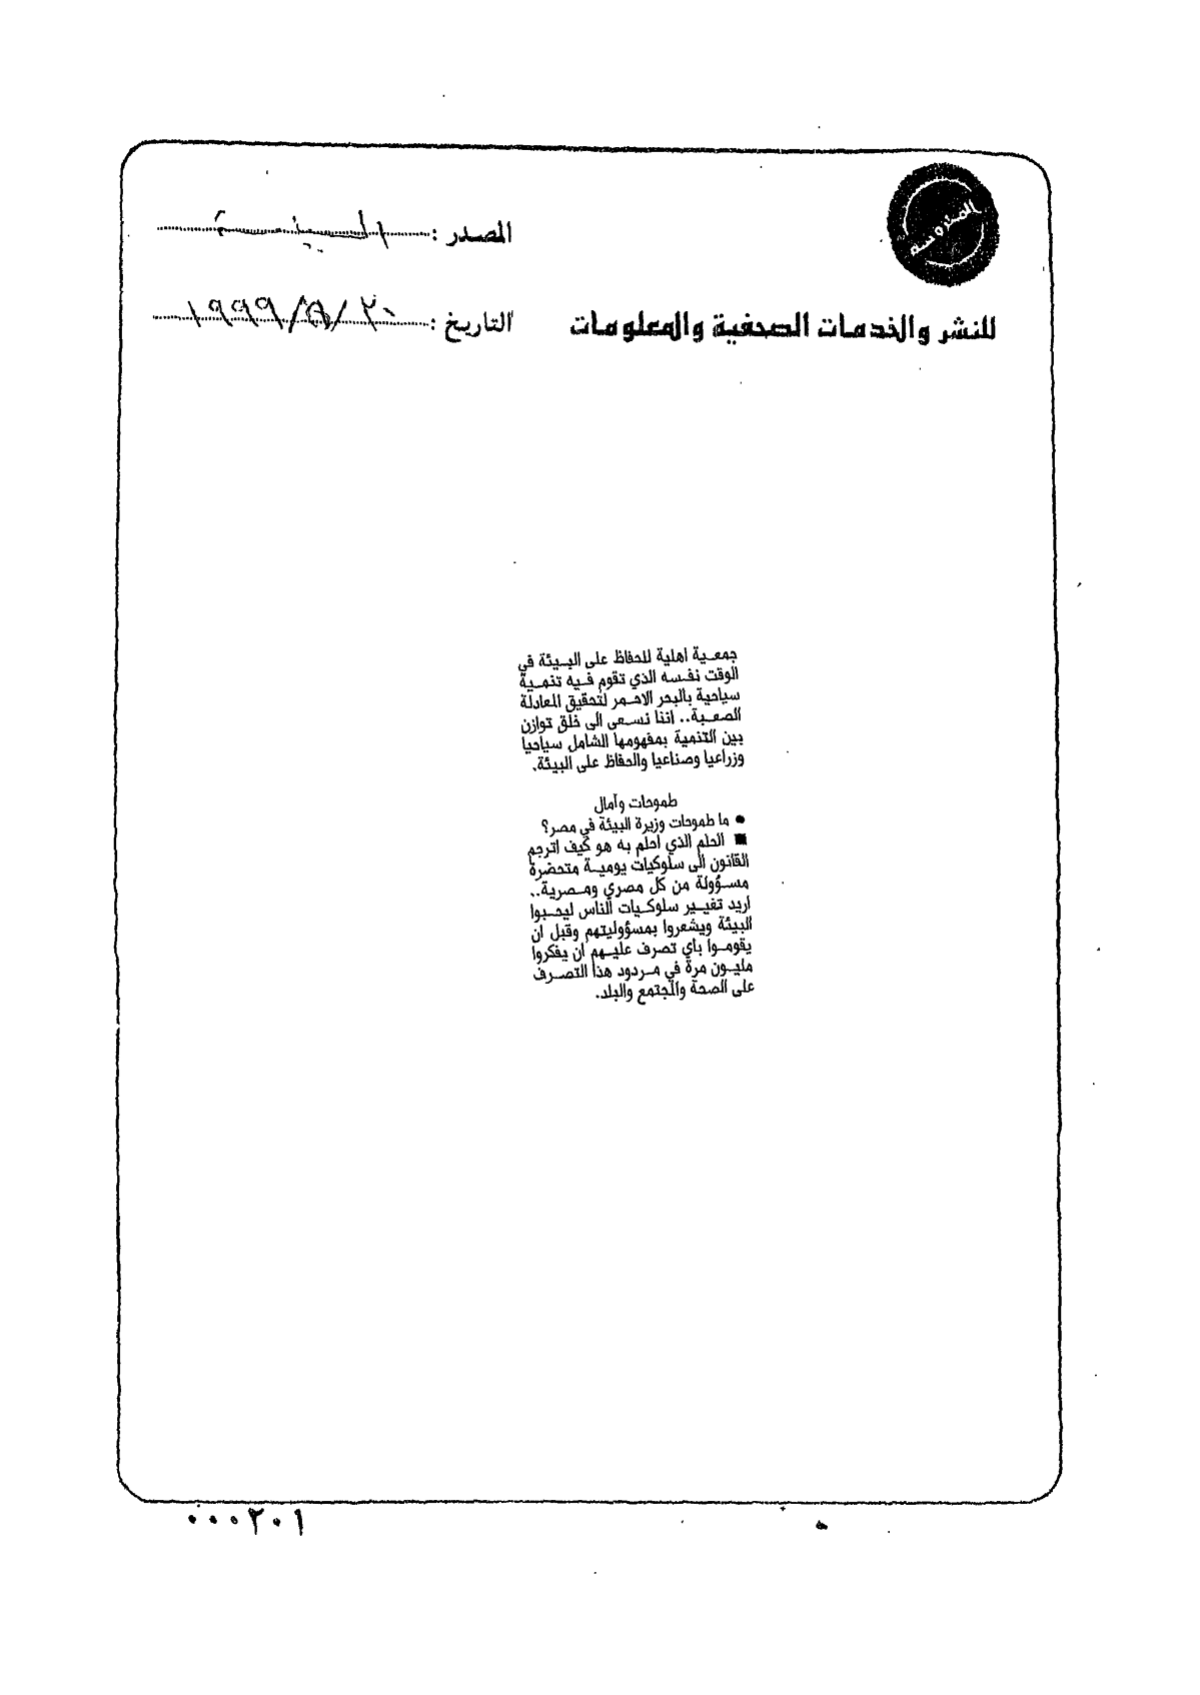 المحروسة
المصدر : البيئة
للنشر والخدمات الصحفية والمعلومات
التاريخ : ٢٠/٥/١٩٩٩
جمعية اهلية للحفاظ على البيئة في
الوقت نفسه الذي تقوم فيه تنمية
سياحية بالبحر الاحمر لتحقيق المعادلة
الصعبة.. اننا نسعى الى خلق توازن
بين التنمية بمفهومها الشامل سياحيا
وزراعيا وصناعيا والحفاظ على البيئة.
طموحات وآمال
● ما طموحات وزيرة البيئة في مصر؟
■ الحلم الذي احلم به هو كيف اترجم
القانون الى سلوكيات يومية متحضرة
مسؤولة من كل مصري ومصرية..
اريد تغيير سلوكيات الناس ليحبوا
البيئة ويشعروا بمسؤوليتهم وقبل ان
يقوموا باي تصرف عليهم ان يفكروا
مليون مرة في مردود هذا التصرف
على الصحة والمجتمع والبلد.
٠٠٠٢٠١